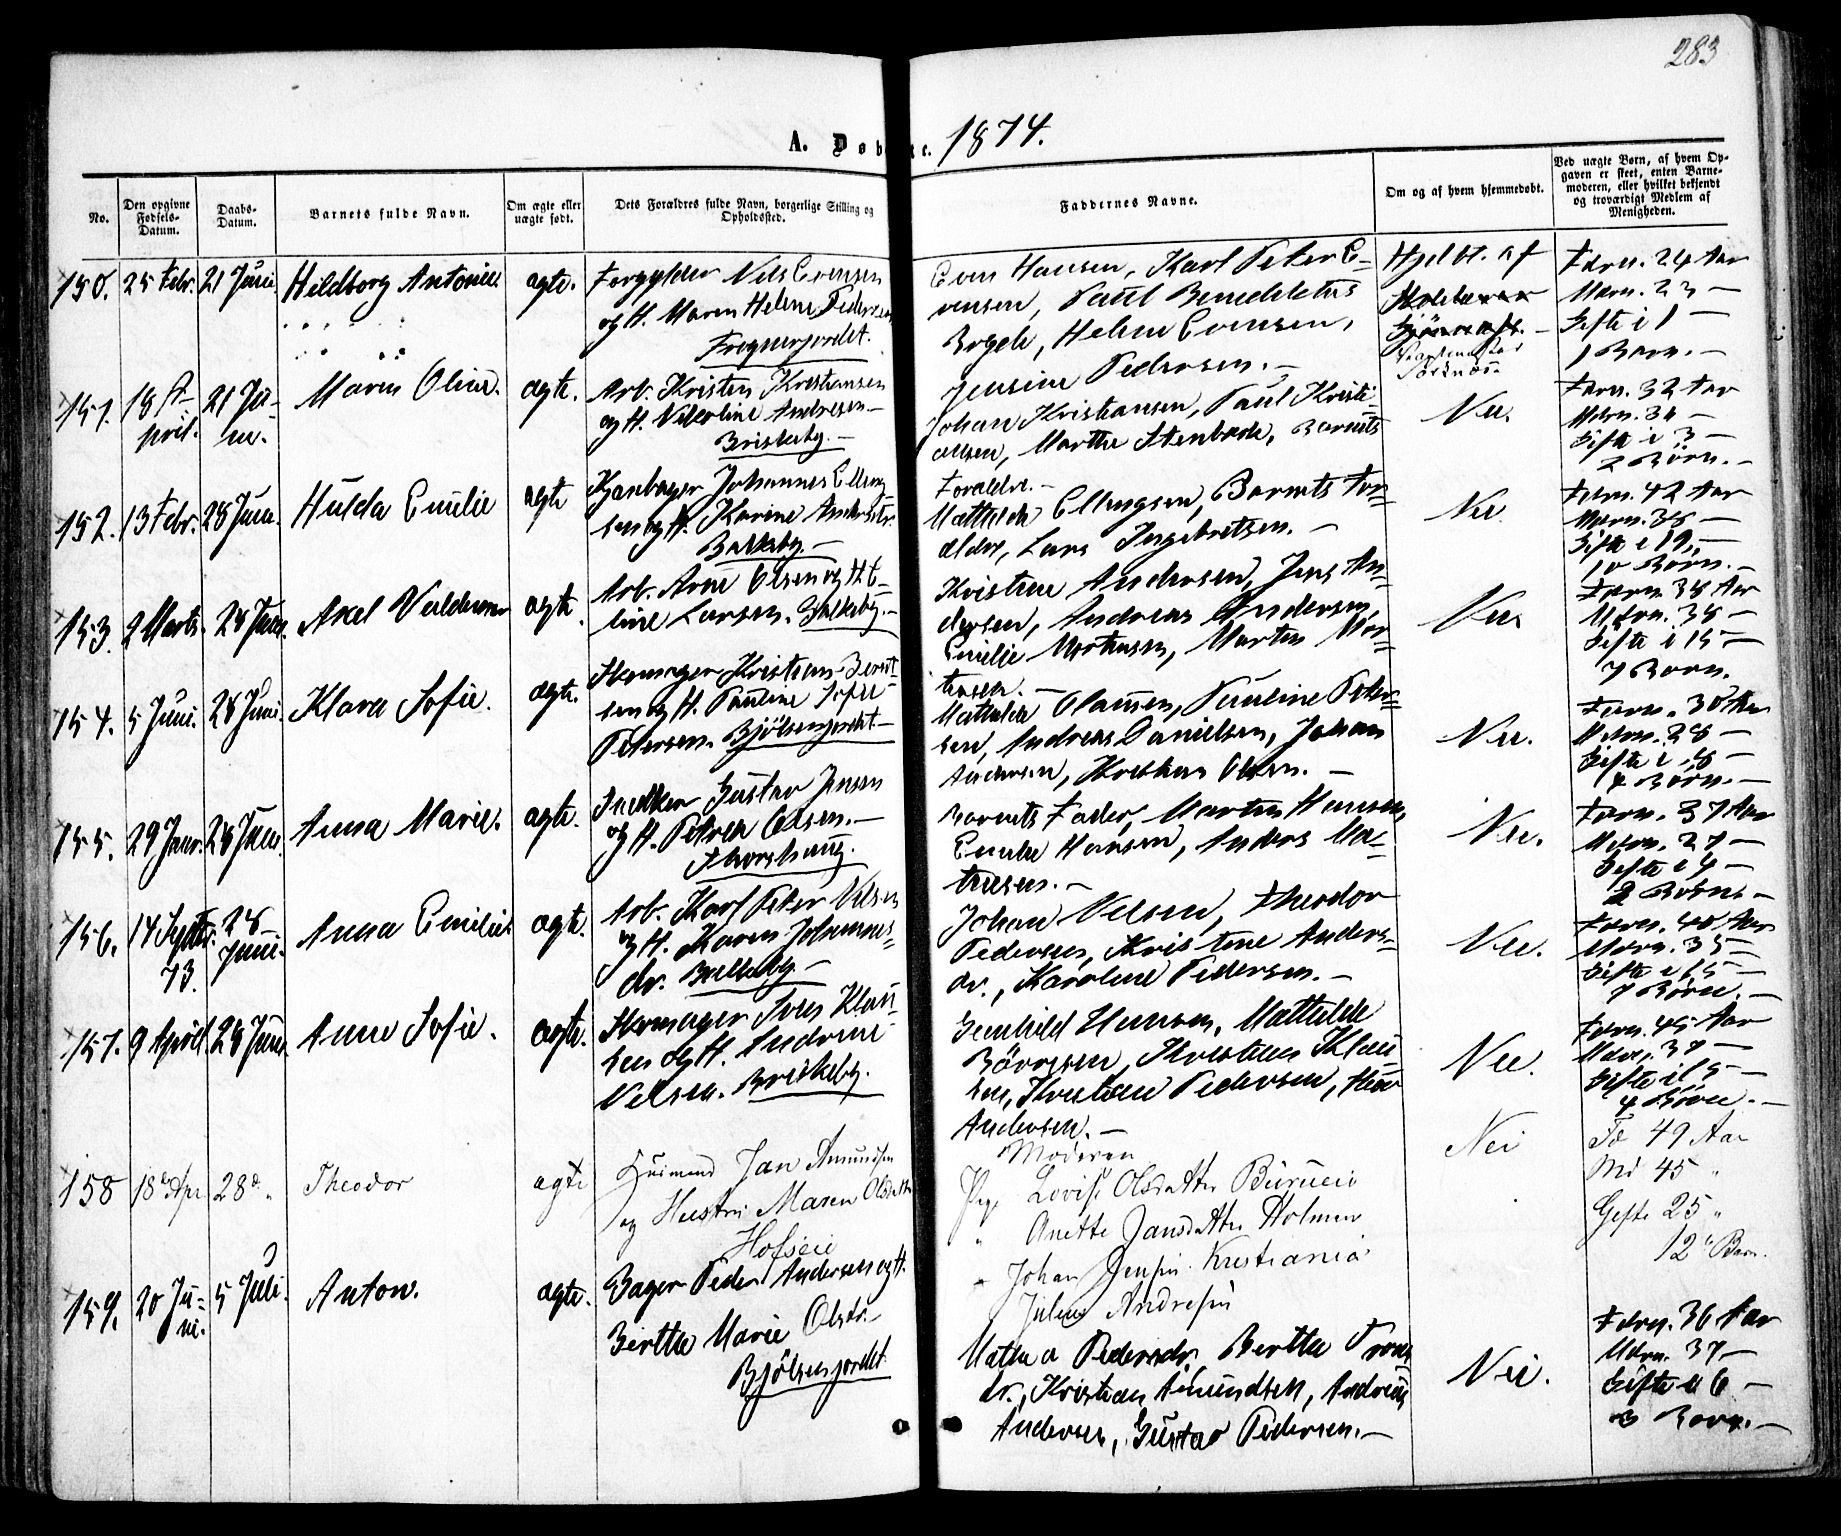 283
A. Døbte. 1874.
No.
Den opgivne Fødsels-Datum.
Daabs-Datum.
Barnets fulde Navn.
Om ægte eller uægte født.
Dets Forældres fulde Navn, borgerlige Stilling og Opholdssted.
Faddernes Navne.
Om og af hvem hjemmedøbt.
Ved uægte Børn, af hvem Opgaven er skeet, enten Barnemoderen, eller hvilket bekjendt og troværdigt Medlem af Menigheden.
150. 25 Febr. 21 Juni Hildborg Antonie ægte. Forgylder Nils Evensen
og H. Maren Helene Pedersen
Frognerjordet.
Even Hansen, Karl Peter E-
vensen, Paul Benediktus
Bogele, Helene Evensen,
Jensine Pedersen. —
Hjdbt. af
Færn. 24 Aar
Mærn. 23 —
Gifte i 1 —
1 Barn. —
151. 18 A-
pril. 21 Ju-
ni. Maren Oline. ægte. Arb. Kristen Kristiansen
og H. Nikoline Andresen —
Briskeby. —
Johan Kristiansen, Paul Kristi-
ansen, Marthe Stenbæk, Barnets
Forældre. —
Nei.
Færn. 32 Aar
Gifte i 3 —
2 Børn. —
152. 13 Febr. 28 Juni Hulda Emilie ægte Johannes Elling
sen og H. Karine Andersdtr.
Balkeby. —
Mathilde Ellingsen, Barnets For-
ældre, Lars Ingebretsen. —
Nei
Færn. 42 Aar
Mærn. 38 —
Gifte i 19 —
10 Børn. —
153. 2 Marts. 28 Juni. Axel Valdemar ægte. Arb. Arne Olsen og H. E-
line Larsen. Balkeby. —
Kristine Andersen, Jens An-
dersen, Andreas Andersen,
Emilie Mortensen, Martin Mor-
tensen. —
Nei
Færn. 38 Aar
Mærn. 38 —
Gifte i 15 —
7 Børn.
154. 5 Juni. 28 Juni. Klara Sofie. ægte. Skomager Kristian Bernt
sen og H. Pauline Sofie
Petersen. Bjölsenjordet —
Mathilde Olausen, Pauline Peter-
sen, Andreas Danielsen, Johan
Andersen, Kristian Olsen. —
Nei.
Færn. 30 Aar
Mærn. 28 —
Gifte i 8 —
4 Børn. —
155. 29 Janr. 28 Juni. Anna Marie. ægte. Snedker Gustav Jensen
og H. Petrea Olsen. —
Thorshaug.
Barnets Fader, Martin Hansen,
Emilie Hansen, Anders Ma-
thisen. —
Nei.
Færn. 37 Aar
Mærn. 27 —
Gifte i 4 —
2 Børn —
156. 14 Septbr.
73. 28
Juni. Anna Emilie ægte. Arb. Karl Peter Nilsen
og H. Karen Johannes-
dr. Balkeby —
Johan Nilsen, Theodor
Pedersen, Kristine Anders-
dr., Karoline Pedersen. —
Nei.
Færn. 40 Aar
Mærn. 35 —
Gifte i 15 —
7 Børn. —
157. 9 April. 28 Juni. Anna Sofie. ægte. Skomager Sven Klau
sen og H. Andrine
Nilsen. Briskeby.
Gunhild Hansen, Mathilde
Börresen, Kristian Klau-
sen, Kristian Pedersen,
Andersen. —
Nei.
Færn. 45 Aar
Mærn. 37 —
Gifte i 15 —
4 Børn. —
158 18de Apr 28de Theodor ægte Huusmand Jan Amundsen
og Hustru Maren Olsdatter
Hofseie
Moderen
Pige Lovise Olsdatter Bürueie
" Anette Jansdatter Holmen
Johan Jensen Kristiania
Julius Andresen
Nei
Fa 49 Aar
Md 45 "
Gifte 25 "
12te Barn.
159. 20 Ju-
ni. 5 Juli. Anton. ægte. Bager Peder Andersen og H.
Birthe Marie Olsdr. —
Bjölsenjordet
Mathea Pedersdr, Berthe Trons
dr., Kristian Amundsen, Andreas
Andersen, Gustav Pedersen. —
Nei.
Færn. 36 Aar
Mærn. 37 —
Gifte i 6 —
3 Børn. —